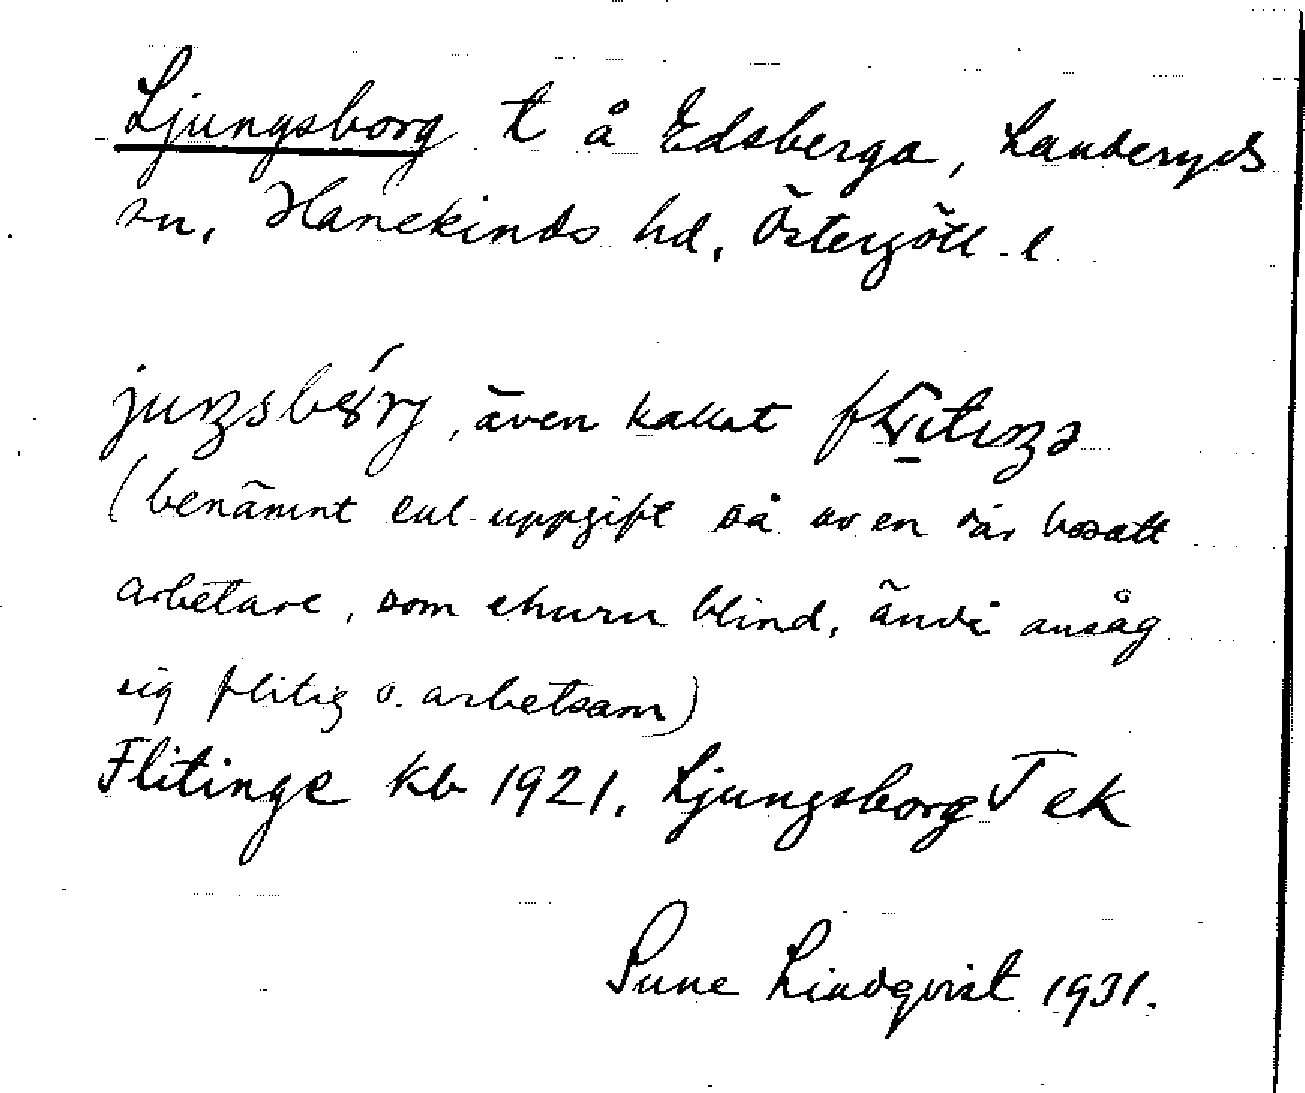 Ljungsborg t å Edsberga, Landeryds
sn, Hanekinds hd, Östergötl. l
även kallat
(benämnt enl. uppgift så av en där bosatt
arbetare, som ehuru blind, ändå ansåg
sig flitig o. arbetsam)
Flitinge kb 1921. Ljungsborg T ek
Sune Lindqvist 1931.